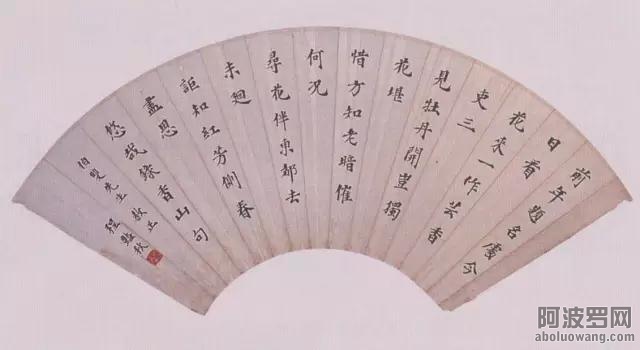 前年題名處今
日看
花來一作芸香
吏三
見牡丹開豈獨
花堪
惜方知老暗催
何況
尋花伴東都去
未迴
詎知紅芳側春
盡思
悠哉錄香山句
伯先生 教正
程艷秋
阿波罗网
aboluowang.com